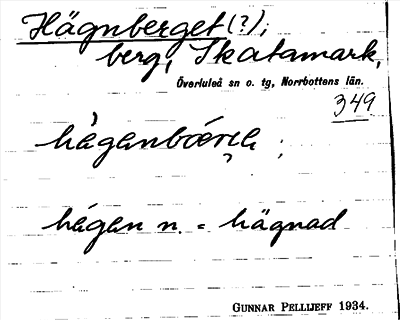 Hägnberget (?);
berg, Skatamark,
Överluleå sn o. tg, Norrbottens län.
349
hågen n. = hägnad
GUNNAR PELLIJEFF 1934.